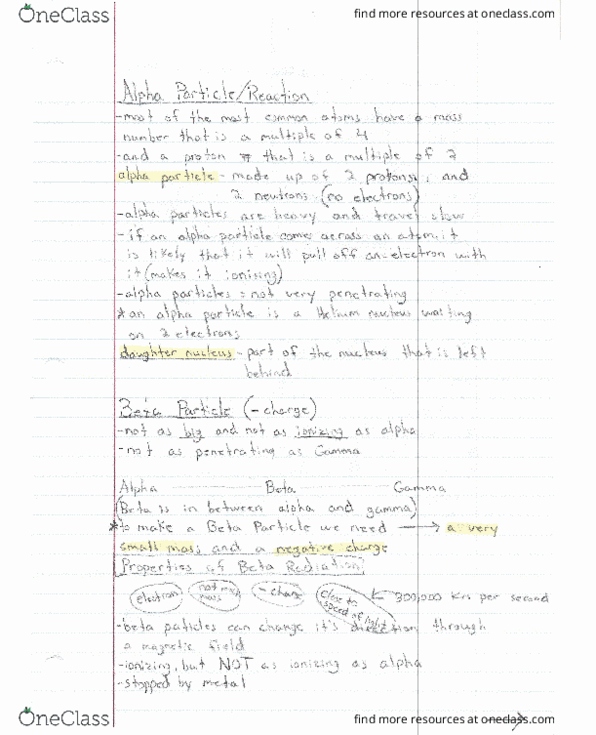 OneClass
find more resources at oneclass.com
Alpha Particle/Reaction
-most of the most common atoms have a mass
number that is a multiple of 4
-and a proton # that is a multiple of 2
alpha particle - made up of 2 protons, and
2 neutrons (no electrons)
-alpha particles are heavy and travel slow
-if an alpha particle comes across an atom, it
is likely that it will pull off an electron with
it (makes it ionising)
-alpha particles = not very penetrating
*an alpha particle is a Helium nucleus waiting
on 2 electrons
daughter nucleus - part of the nucleus that is left
behind
Beta Particle (- charge)
-not as big and not as ionizing as alpha
-not as penetrating as Gamma
Alpha Beta Gamma
(Beta is in between alpha and gamma)
*to make a Beta Particle we need → a very
small mass and a negative charge
Properties of Beta Radiation
electron not much mass - charge close to speed of light ← 300,000 Km per second
-beta paticles can change it's direction through
a magnetic field
-ionizing, but NOT as ionizing as alpha
-stopped by metal
OneClass
find more resources at oneclass.com